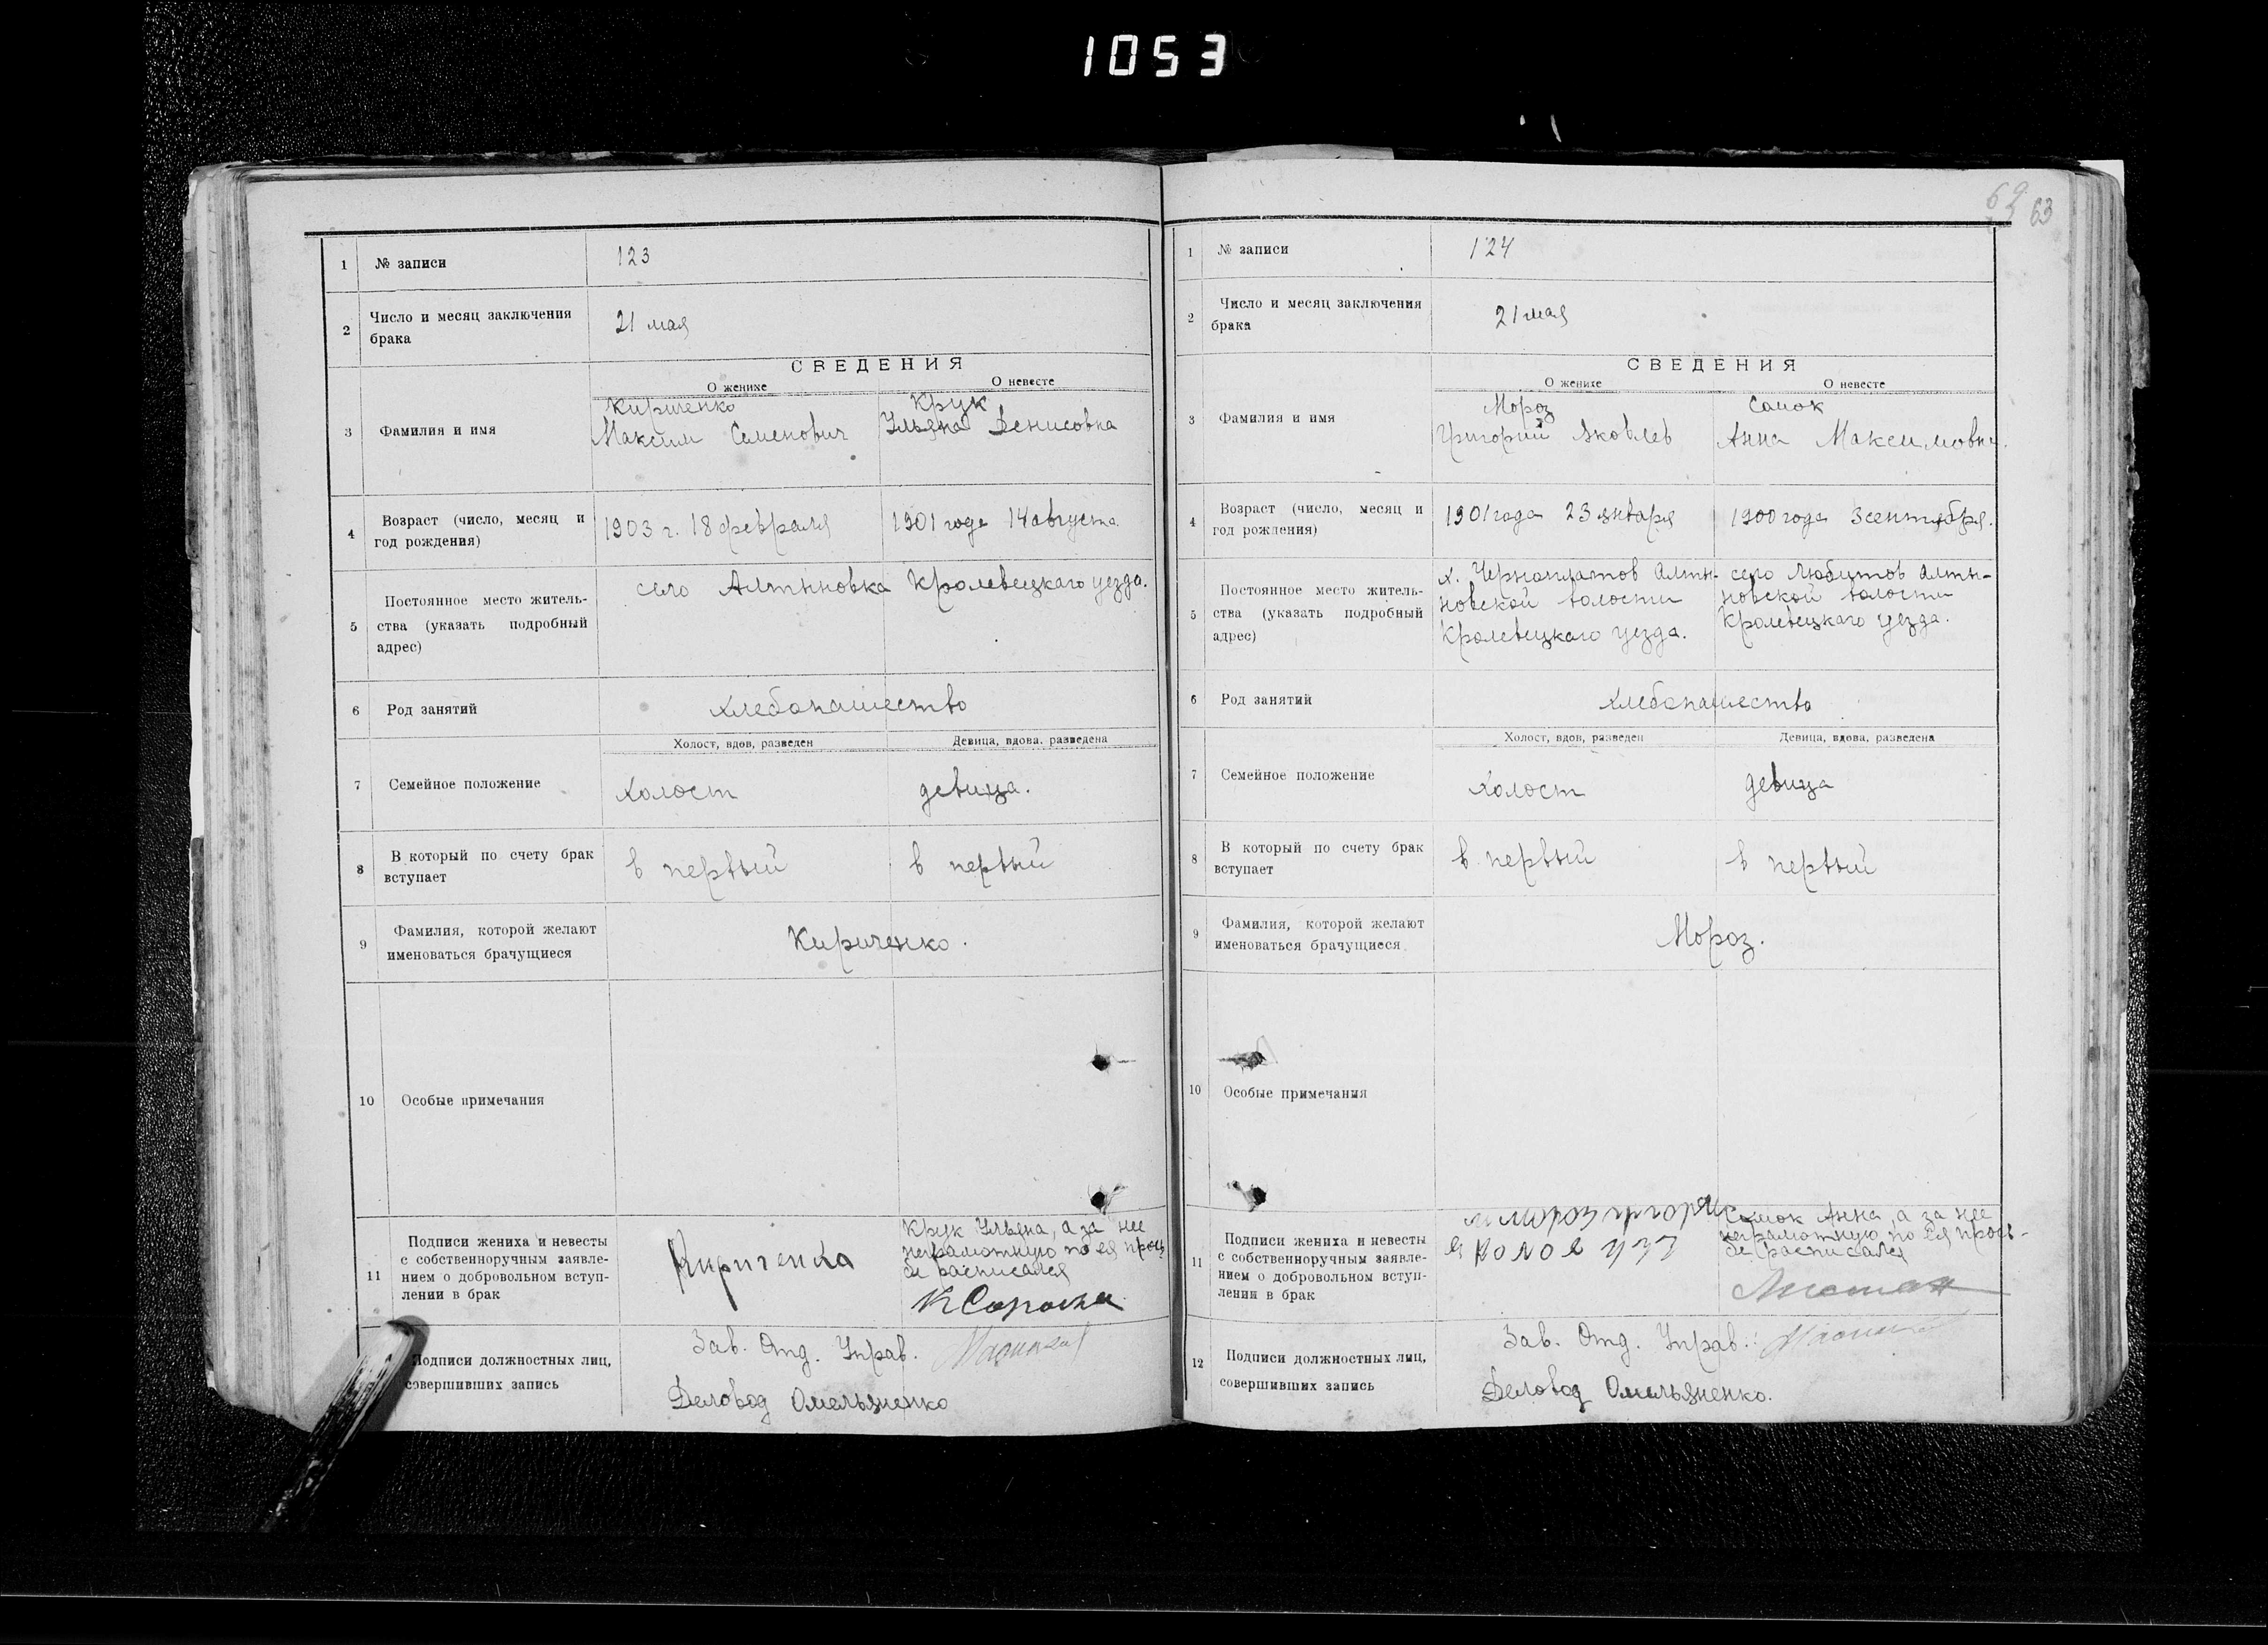 1053
1 № записи 123
2 Число и месяц заключения
брака
21 мая
СВЕДЕНИЯ
О женихе О невесте
3 Фамилия и имя
Кириченко Крук
Максим Семенович Ульяна Денисовна
4 Возраст (число, месяц и
год рождения)
1903 г. 18 февраля 1901 года 14 августа
5 Постоянное место житель-
ства (указать подробный
адрес)
село Алтыновка Кролевецкаго уезда.
6 Род занятий хлебопашество
Холост, вдов, разведен Девица, вдова, разведена
7 Семейное положение холост девица.
8 В который по счету брак
вступает
в первый в первый
9 Фамилия, которой желают
именоваться брачущиеся
Кириченко.
10 Особые примечания
11 Подписи жениха и невесты
с собственноручным заявле-
нием о добровольном вступ-
лении в брак
Кириченка
Крук Ульяна, а за нее
неграмотную по ея прось
бе расписался
К Сорока
Подписи должностных лиц,
совершивших запись
Зав. Отд. Управ.
Деловод Омельяненко
63
1 № записи 124
2 Число и месяц заключения
брака
21 мая
СВЕДЕНИЯ
О женихе О невесте
3 Фамилия и имя
Мороз Самок
Григорий Яковлев Анна Максимовна.
4 Возраст (число, месяц и
год рождения)
1901 года 23 января 1900 года 3 сентября.
5 Постоянное место житель-
ства (указать подробный
адрес)
х. Черноплатов Алты- село Любитов Алты-
новской волости новской волости
Кролевецкаго уезда. Кролевецкаго уезда.
6 Род занятий хлебопашество
Холост, вдов, разведен Девица, вдова, разведена
7 Семейное положение холост девица
8 В который по счету брак
вступает
в первый в первый
9 Фамилия, которой желают
именоваться брачущиеся
Мороз.
10 Особые примечания
11 Подписи жениха и невесты
с собственноручным заявле-
нием о добровольном вступ-
лении в брак
Самок Анна, а за нее
неграмотную по ея прось-
бе расписался
12 Подписи должностных лиц,
совершивших запись
Зав. Отд. Управ.:
Деловод Омельяненко.